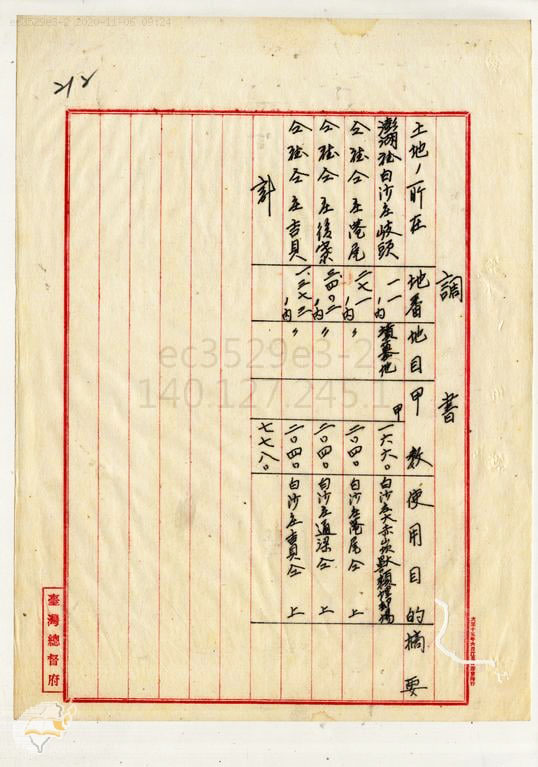 ec3529e3-2 2020-11-06 09:24
調書
土地ノ所在 地番 地目 甲数 使用目的 摘要
澎湖廳白沙庄岐頭 一一ノ内 墳墓地 甲 一六六〇 白沙庄大赤崁獸類埋却場
仝廳仝庄港尾 二七一ノ内 〃 二〇四〇 白沙庄港尾仝上
仝廳仝庄後寮 〃 二〇四〇 白沙庄通梁仝上
仝廳仝庄吉貝 一二七三ノ内 〃 二〇四〇 白沙庄吉貝仝上
計 七七八〇
臺灣總督府
ec3529e3-2
140.127.245.1